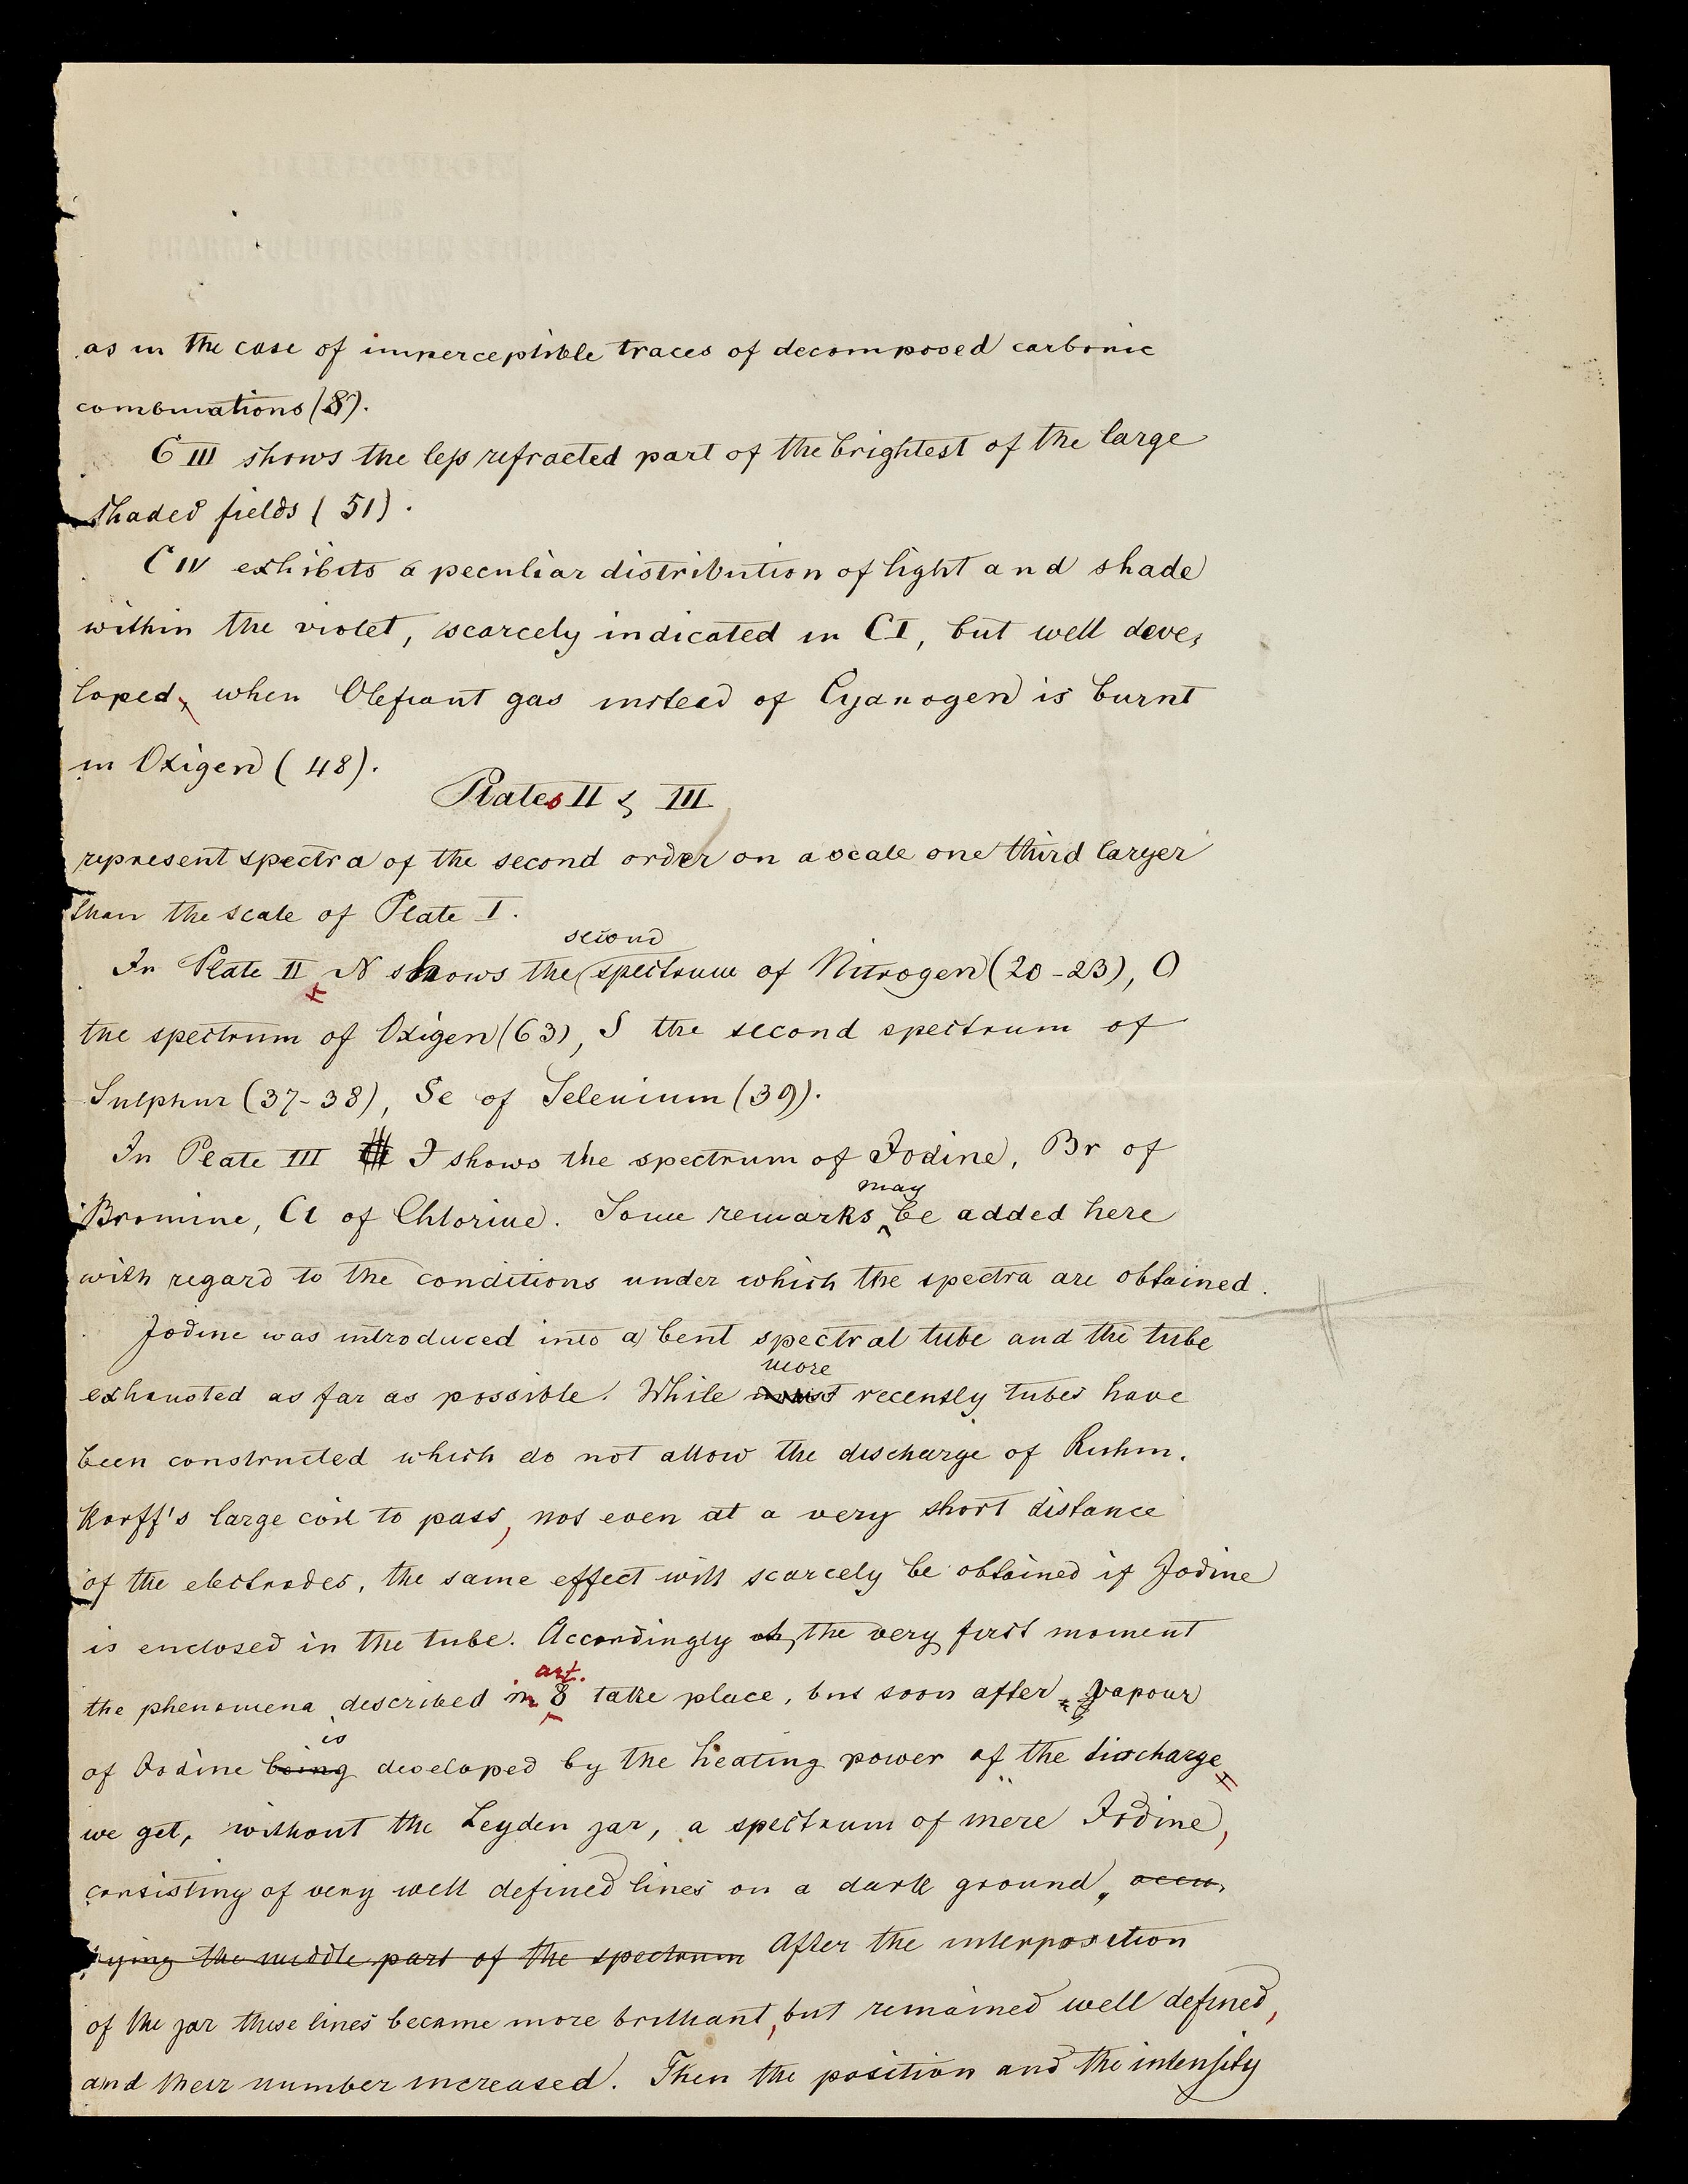 as in the case of imperceptible traces of decomposed carbonic
combinations (8).
C III shows the less refracted part of the brightest of the large
shaded fields (51).
C IV exhibits a peculiar distribution of light and shade
within the violet, scarcely indicated in C I, but well deve,
loped, when Olefiant gas instead of Cyanogen is burnt
in Oxigen (48).
Plates II & III
represent spectra of the second order on a scale one third larger
than the scale of Plate I.
second
In Plate II N shows the spectrum of Nitrogen (20-23), O
the spectrum of Oxigen (63), S the second spectrum of
Sulphur (37-38), Se of Selenium (39).
In Plate III J shows the spectrum of Iodine, Br of
may
Bromine, Cl of Chlorine. Some remarks be added here
with regard to the conditions under which the spectra are obtained.
Jodine was introduced into a bent spectral tube and the tube
more
exhausted as far as possible. While most recently tubes have
been constructed which do not allow the discharge of Ruhm.
korff's large coil to pass, not even at a very short distance
of the electrodes, the same effect will scarcely be obtained if Jodine
is enclosed in the tube. Accordingly at the very first moment
art.
the phenomena described in 8 take place, but soon after vapour
is
of Iodine being developed by the heating power of the discharge
we get, without the Leyden jar, a spectrum of mere Iodine,
consisting of very well defined lines on a dark ground, occu,
pying the middle part of the spectrum After the interposition
of the jar these lines became more brilliant, but remained well defined,
and their number increased. Then the position and the intensity